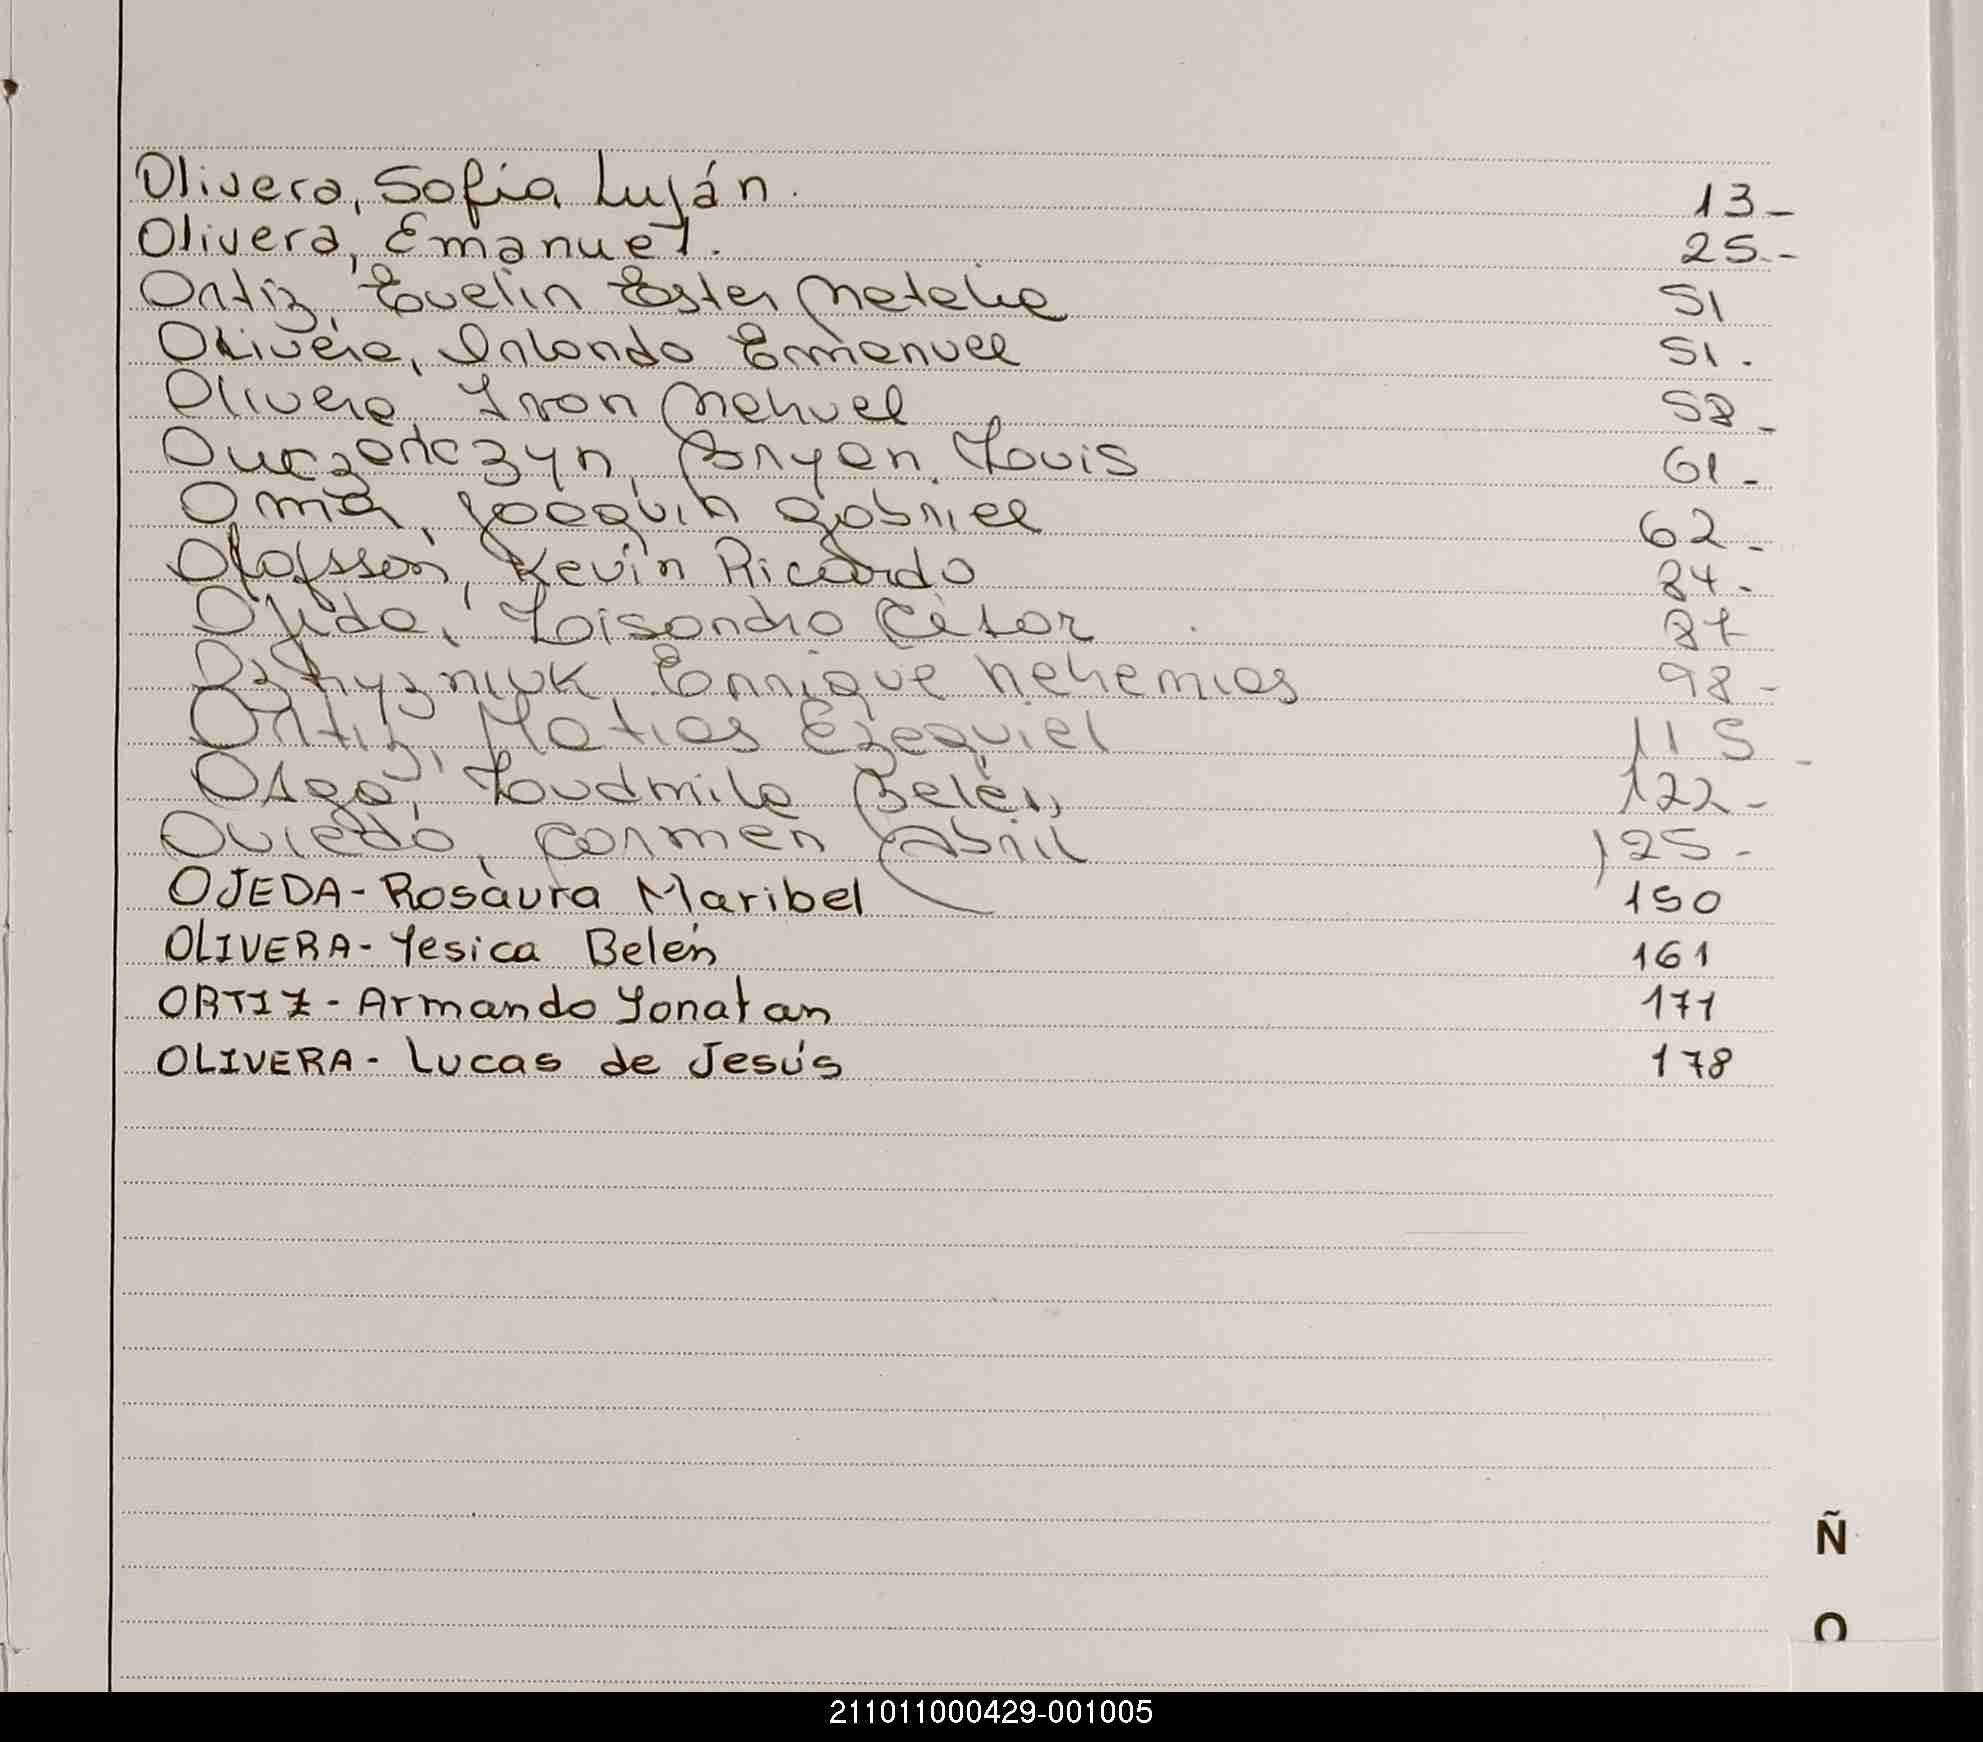 Olivera, Sofia Luján. 13-
Olivera, Emanuel. 25--
Ortiz, Evelin Ester Natalie 51
Olivera, Orlando Emmanuel 51.
Olivera Ivon Nahuel 58-
Bryan Louis 61-
Joaquin Gabriel 62-
Olofsson, Kevin Ricardo 84-
Ojeda, Loisandro César 87
Enrique Nehemias 98-
Ortiz, Matias Ezequiel 115-
Loudmila Belén 122-
Oviedo, Carmen Abril 125-
OJEDA - Rosaura Maribel 150
OLIVERA - Yesica Belén 161
ORTIZ - Armando Yonatan 171
OLIVERA - Lucas de Jesús 178
Ñ
O
211011000429-001005